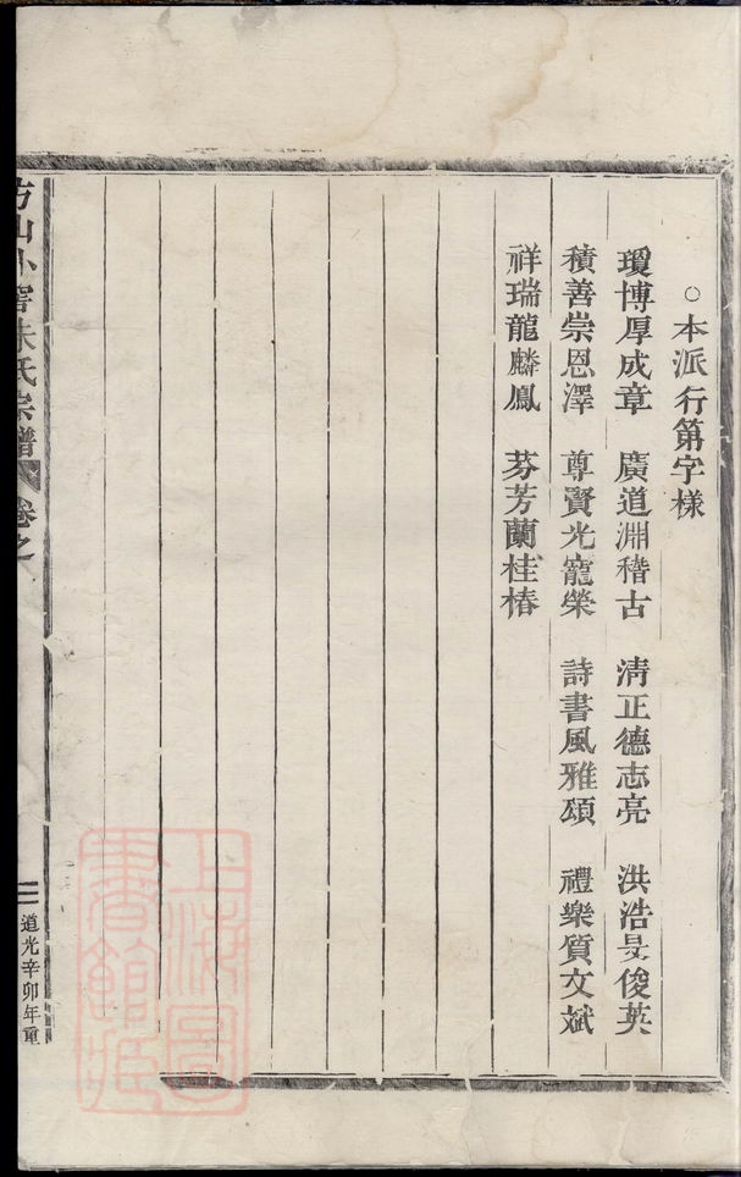 ○本派行第字樣
瓊博厚成章 廣道淵稽古 清正德志亮 洪浩旻俊英
積善崇恩澤 尊賢光寵榮 詩書風雅頌 禮樂質文斌
祥瑞龍麟鳳 芬芳蘭桂椿
方山外窖朱氏宗譜 卷之
二 道光辛卯年重
上海圖書館藏